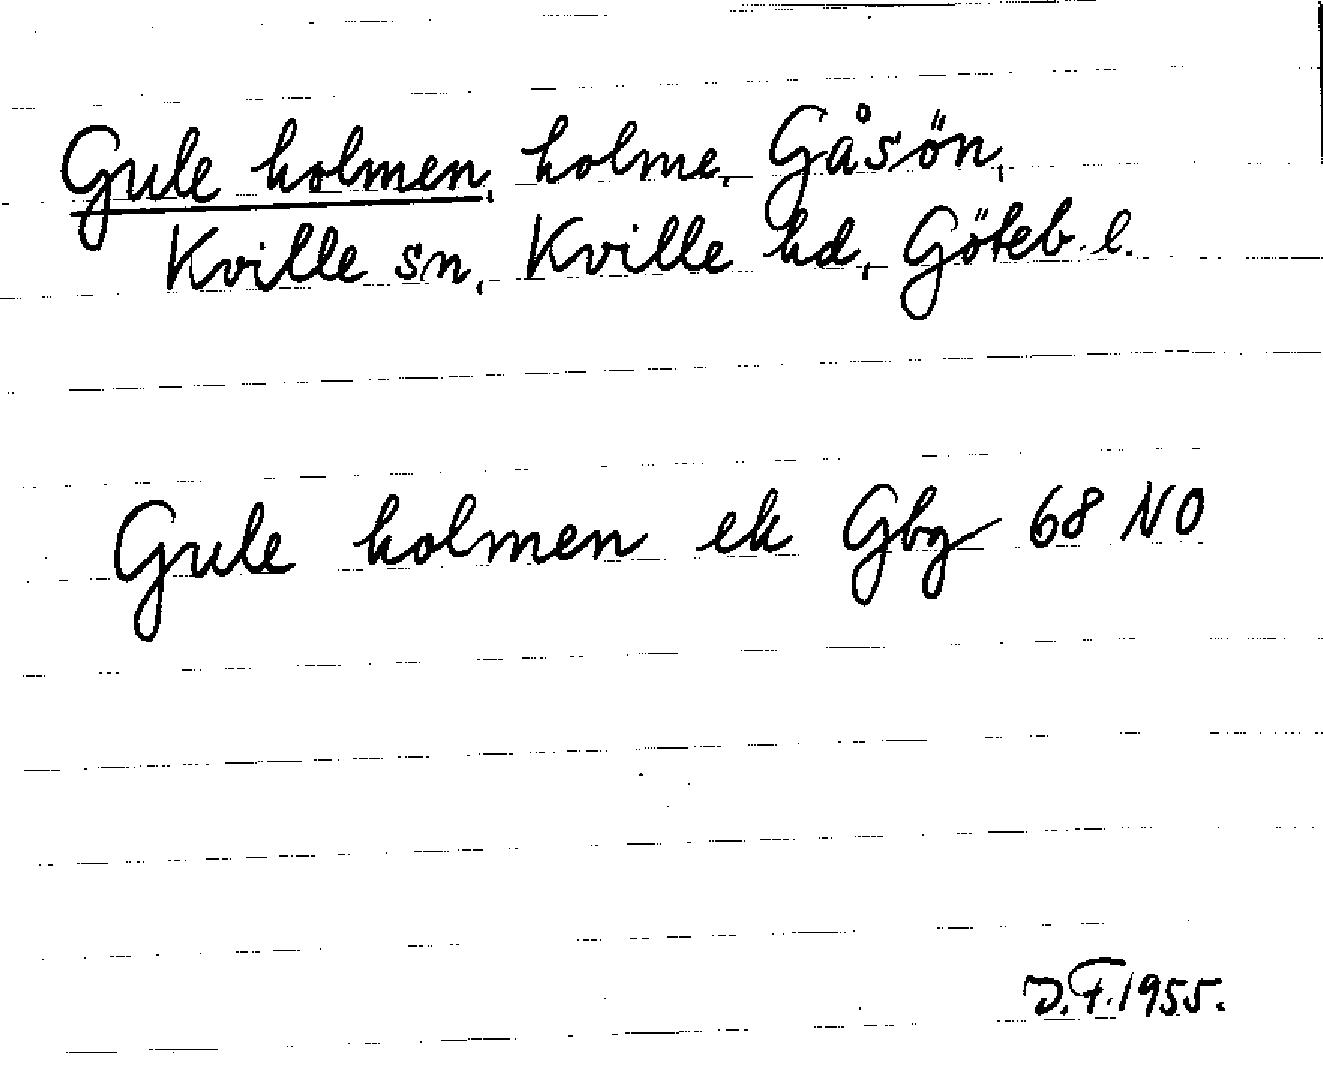 Gule holmen, holme, Gåsön,
Kville sn, Kville hd, Göteb. l.
Gule holmen ek Gbg 68 NO
D.F. 1955.